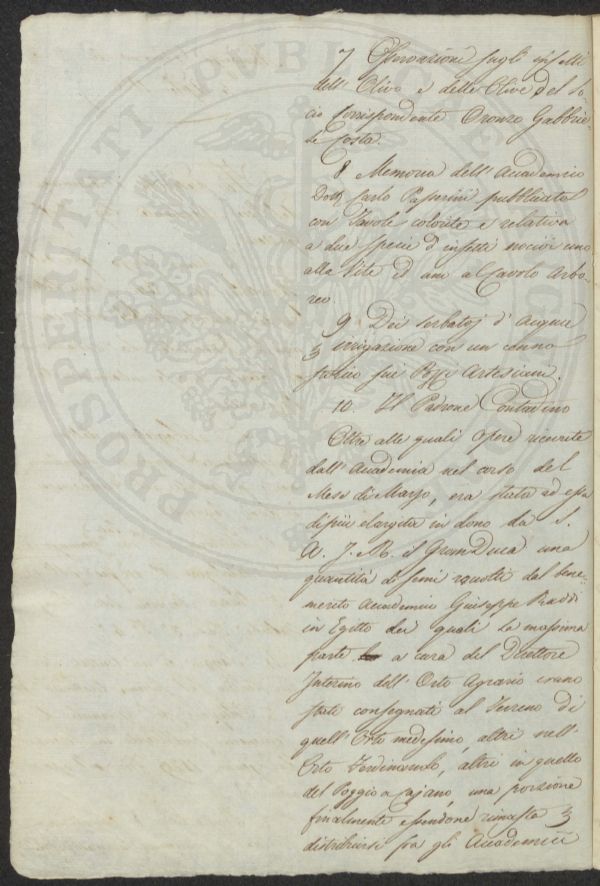 7 Osservazione sugli insetti
dell' Olivo e delle Olive del So
cio Corrispondente Oronzo Gabbrie-
le Costa.
8 Memoria dell' Accademico
Dott. Carlo Passerini pubblicata
con Tavole colorite e relativa
a due specie d' insetti nocivi uno
alla Vite ed uno al Cavolo Arbo
reo.
9 Dei serbatoj d' Acque
irrigazione con un cenno
sui Pozzi Artesiani.
10. Il Padrone Contadino
Oltre alle quali opere ricevute
dall' Accademia nel corso del
Mese di Marzo, era stata ad essa
di più elargita in dono da S.
A. I. R. il GranDuca una
quantità di semi raccolti dal bene-
merito Accademico Giuseppe Raddi
in Egitto dei quali la massima
parte a cura del Direttore
Interino dell' Orto Agrario erano
stati consegnati al Terreno di
quell' Orto medesimo, altri nell'
Orto altri in quello
del Poggio a Cajano, una porzione
finalmente essendone rimasta
distribuirsi fra gli Accademici
PROSPERITATI PUBLICAE